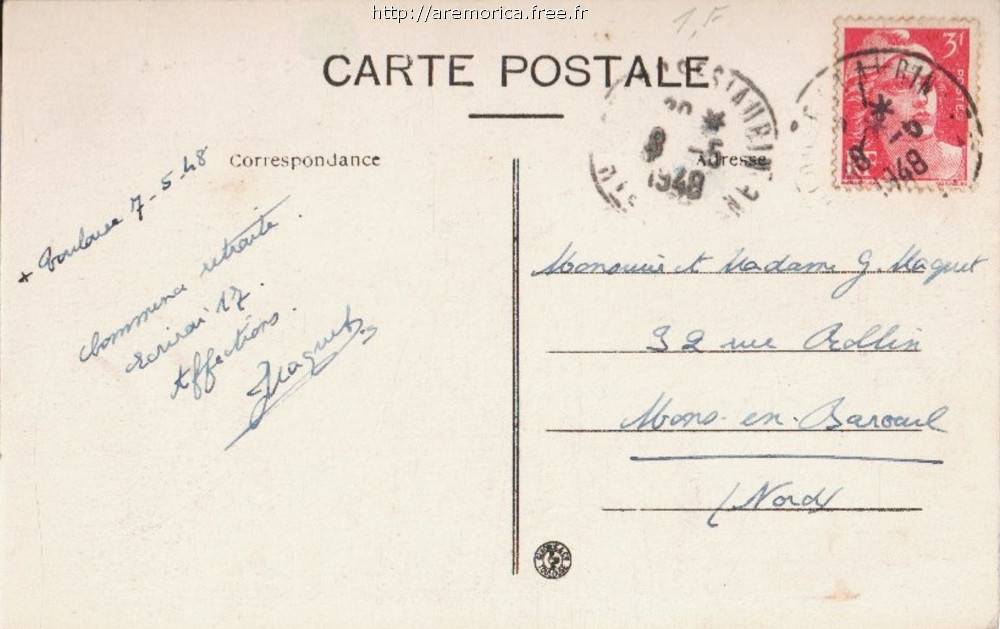 http://aremorica.free.fr
1,F
CARTE POSTALE
3F
POSTES
Correspondance
Adresse
20 *
8 - 5
1948
* - 5
1948
+ Toulouse 7-5-48
Commence retraite
écrirai 17.
Affections.
JMaquet
Monsieur et Madame G. Maquet
32 rue Rollin
Mons-en-Baroeul
(Nord)